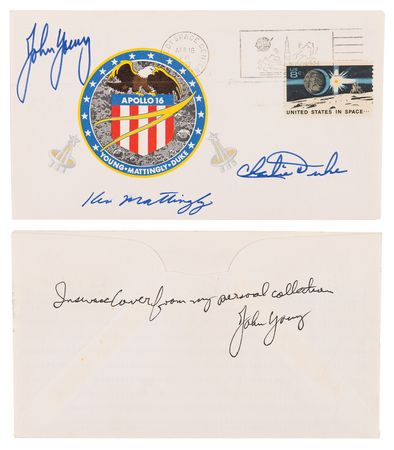 John Young
SPACE CENTER
APR 16
APOLLO 16
YOUNG · MATTINGLY · DUKE
US 8¢
UNITED STATES IN SPACE...
Ken Mattingly
Charlie Duke
Insurance Cover from my personal collection
John Young